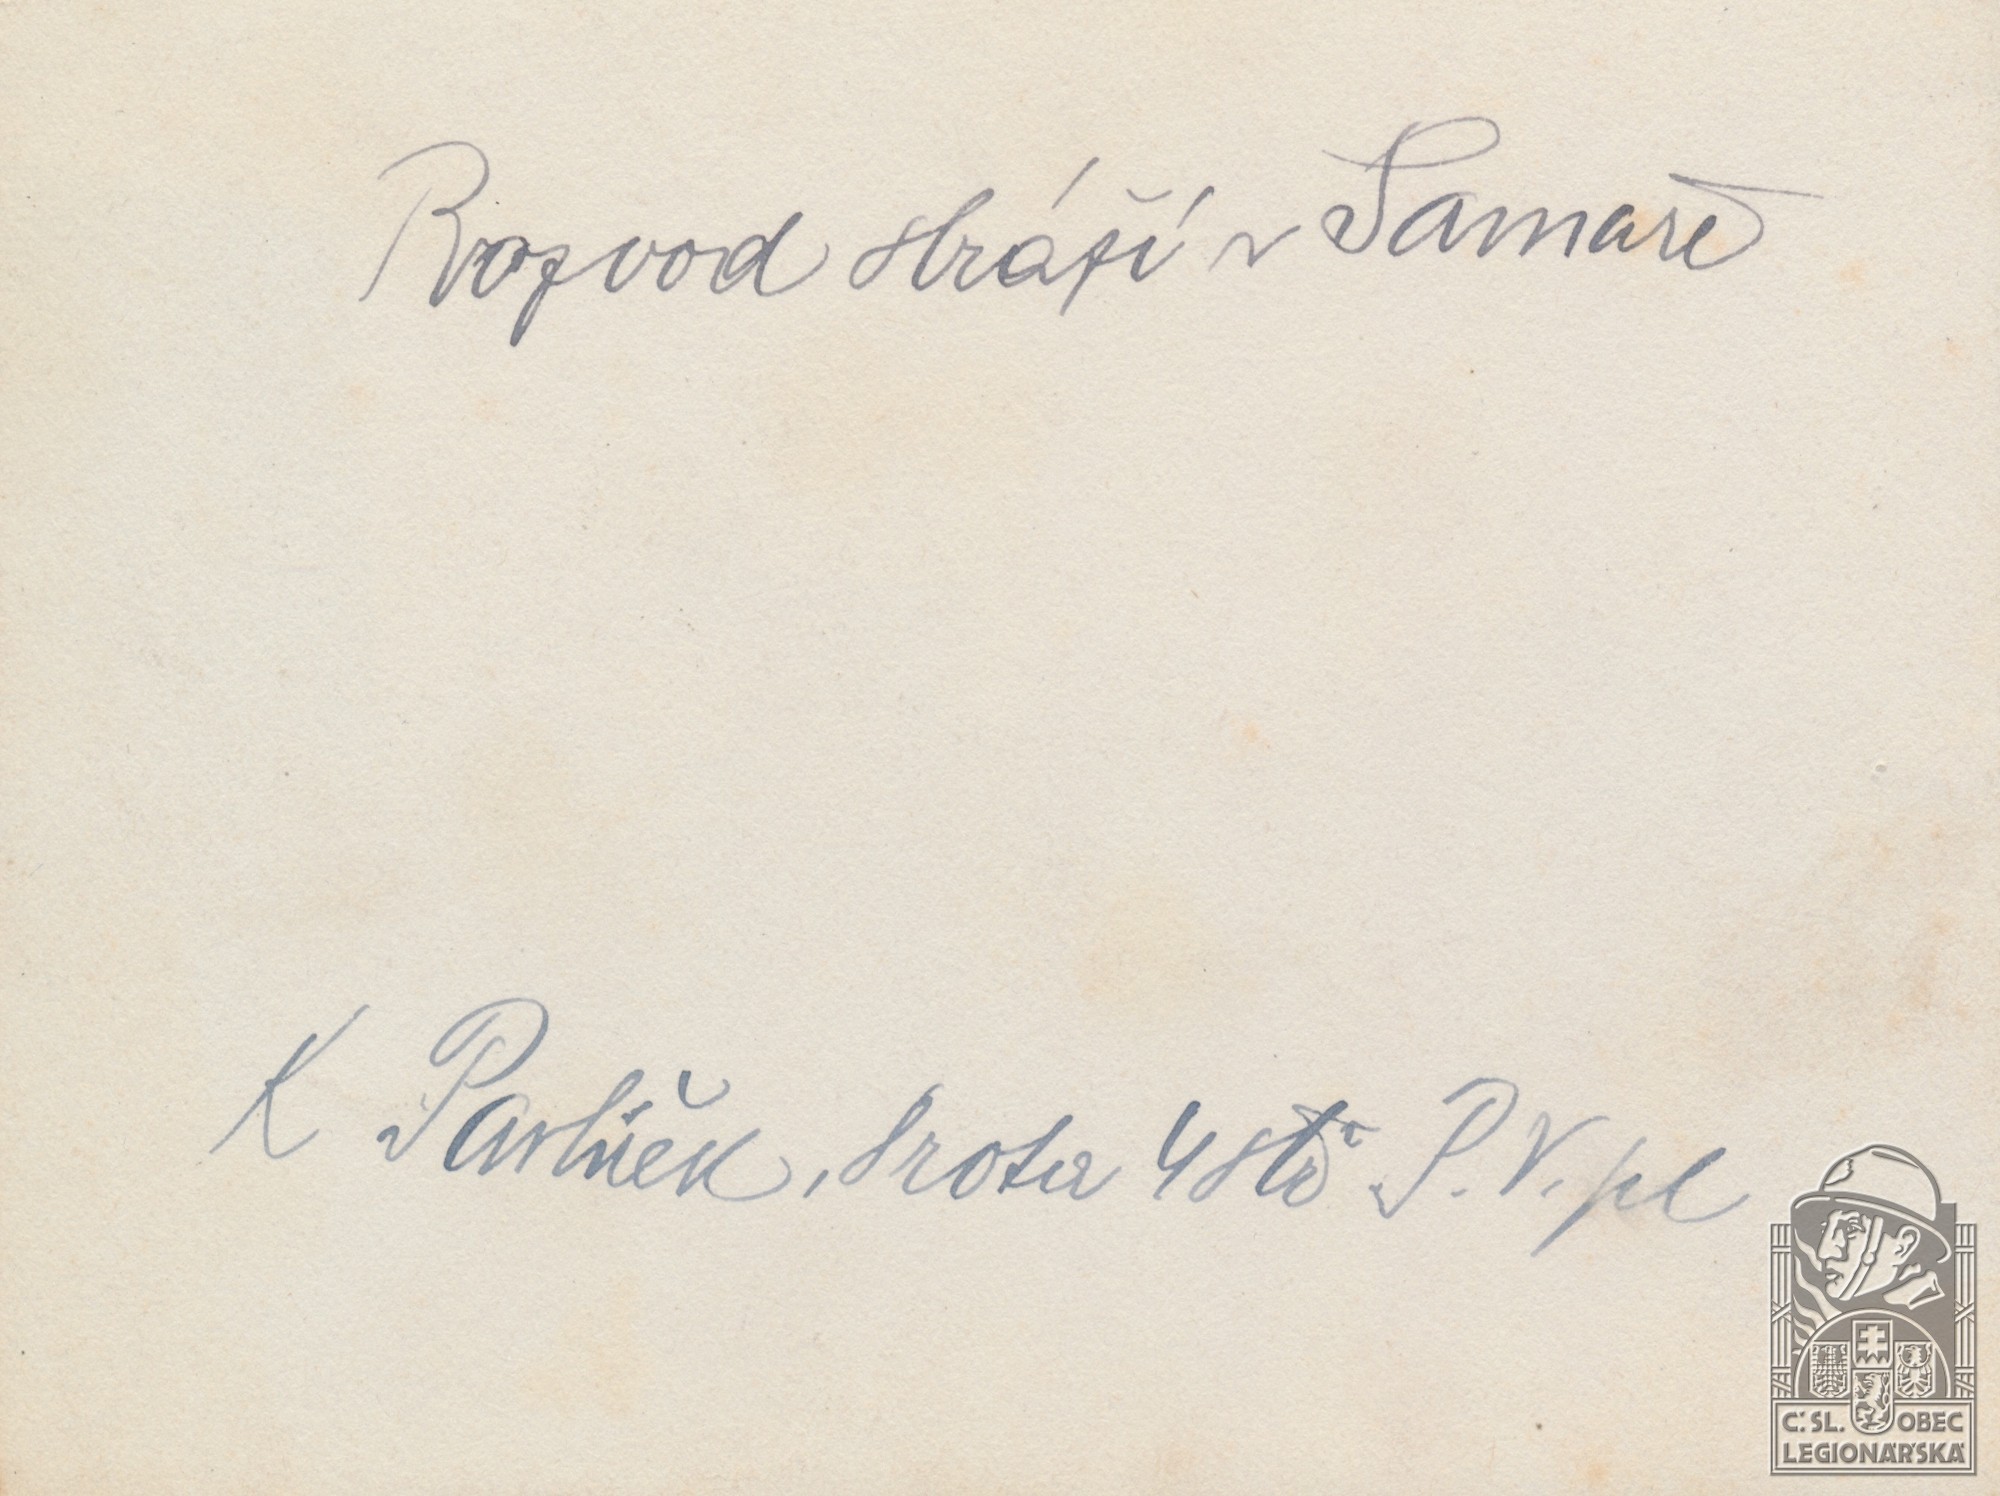 Rozvod stráží v Samaře
K Pavlíček, 8 rota 4 stř P. V. pl
Č. SL. OBEC
LEGIONÁŘSKÁ